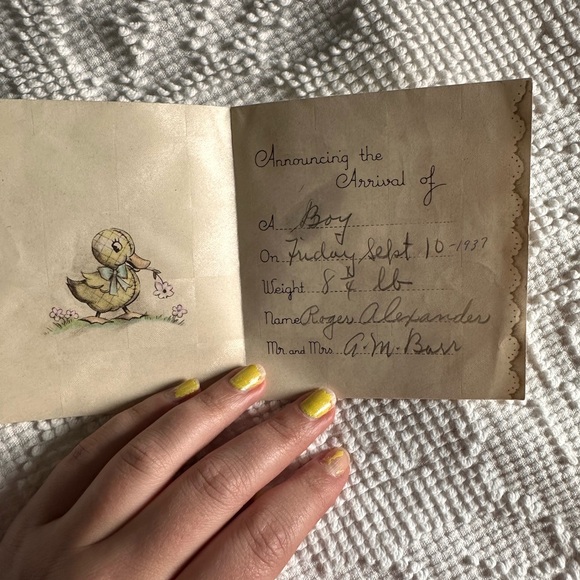 Announcing the
Arrival of
A Boy
On Friday Sept 10-1937
Weight 8 1/4 lb
Name Roger Alexander
Mr and Mrs. A. M. Barr